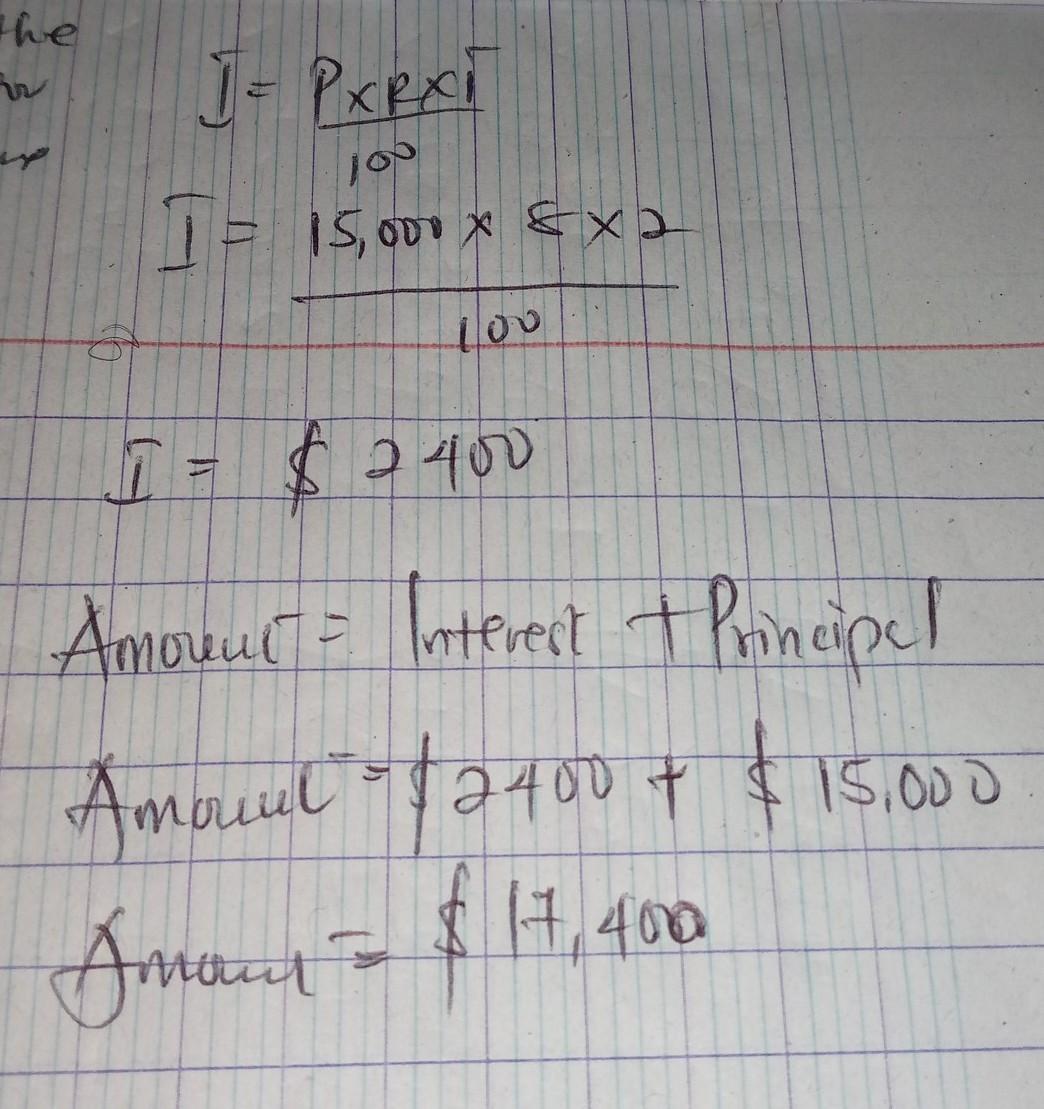 the
I = PxRxT
100
I = 15,000 x 8 x 2
100
I = $ 2400
Amount = Interest + Principal
Amount = $ 2400 + $ 15,000
Amount = $ 17,400